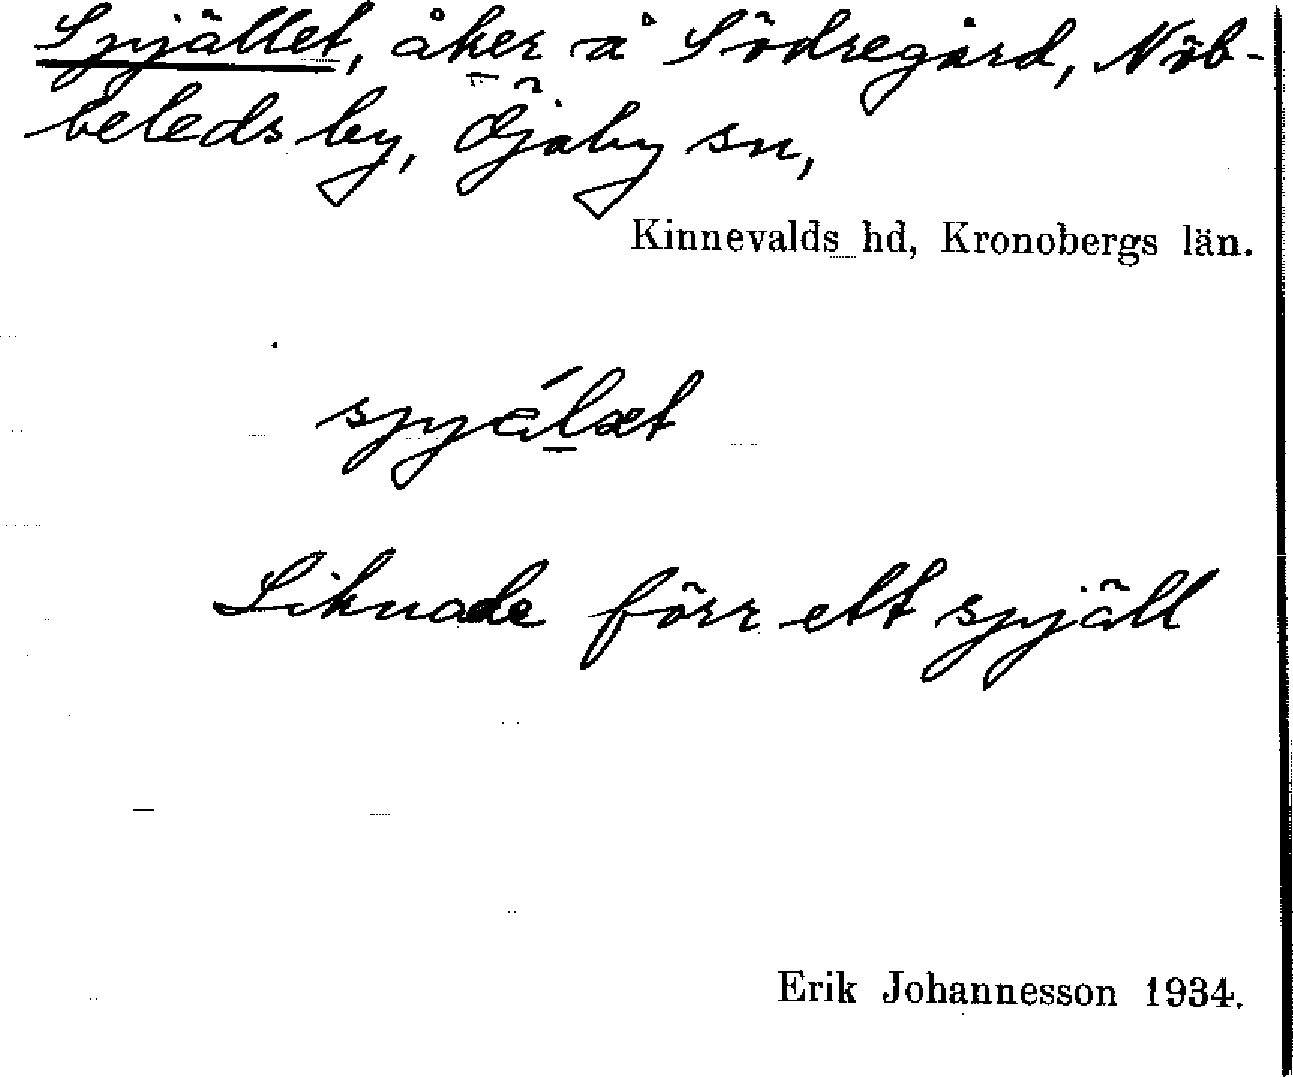 Spjället, åker å Södregård, Nöb-
beleds by, Öjaby sn,
Kinnevalds hd, Kronobergs län.
spjälæt
Liknade förr ett spjäll
Erik Johannesson 1934.